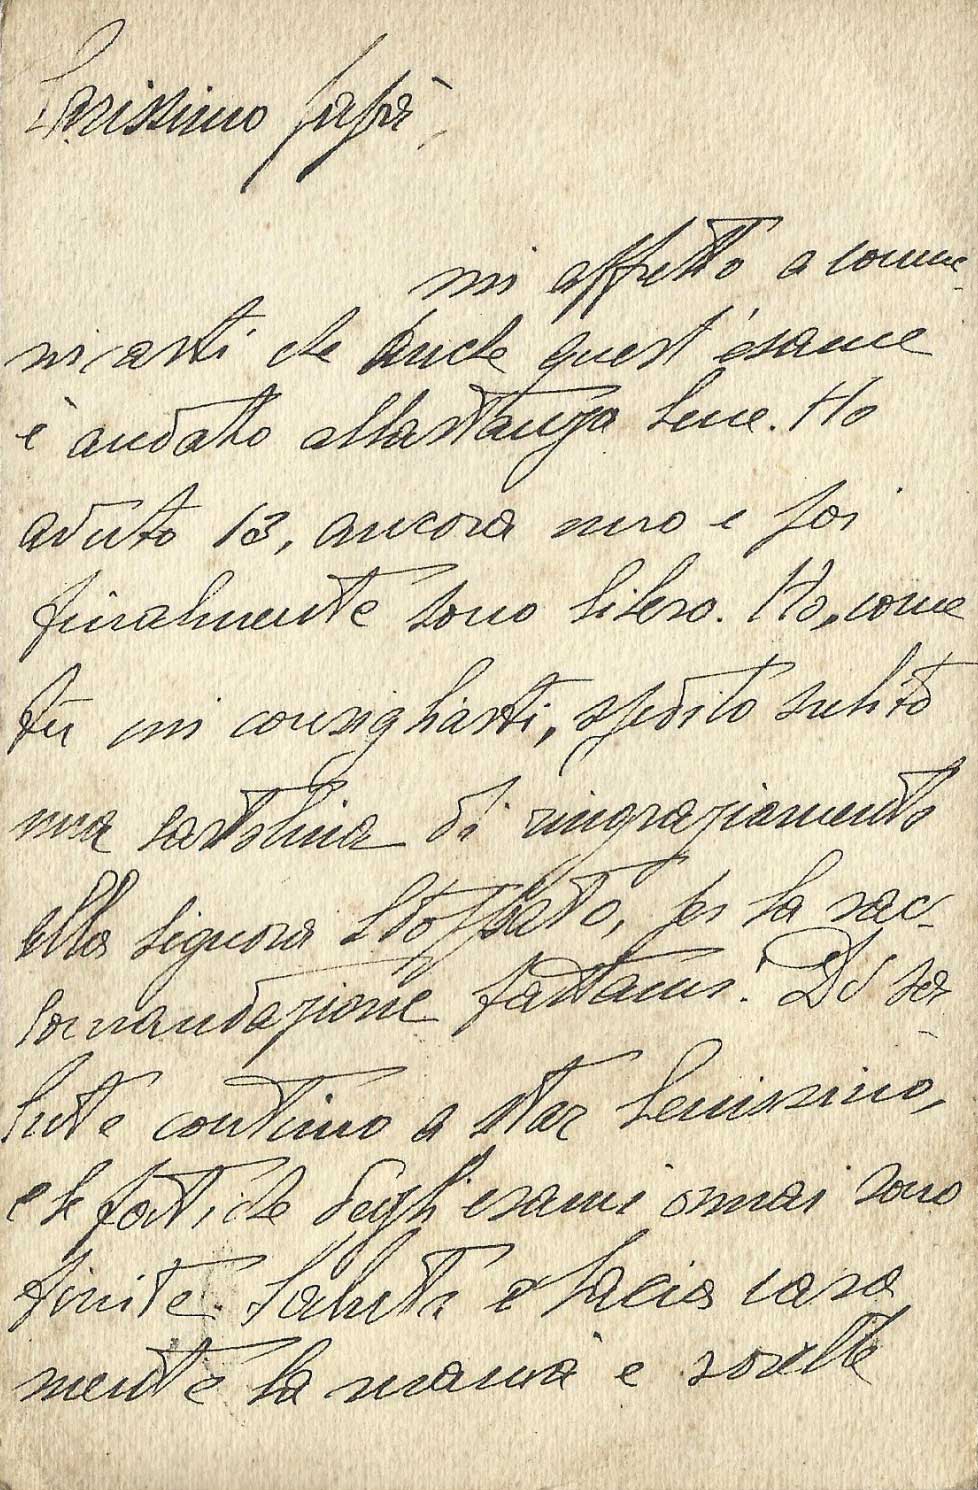 Carissimo papà,
mi affretto a comu-
nicarti che anche quest'esame
è andato allastanza bene. Ho
avuto 13, ancora uno e poi
finalmente sono libero. Ho, come
tu mi consigliasti, spedito subito
una cartolina di ringraziamento
alla signora per la rac-
comandazione fattami. Di sa-
lute continuo a star benissimo,
e le fatiche degli esami ormai sono
finite. Saluta e bacia cara
mente la mamà e sorelle